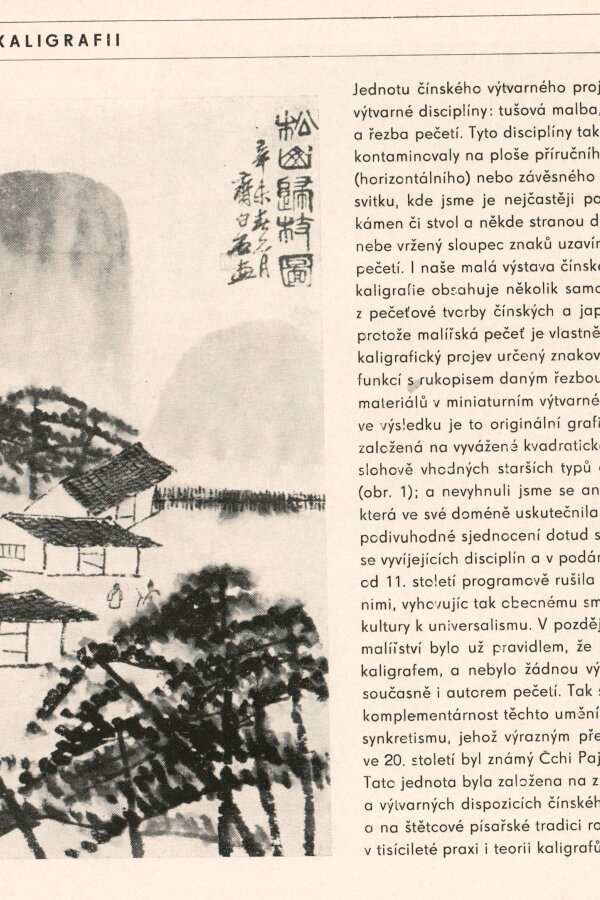 KALIGRAFII
松山歸圖
辛未月
白石畫
Jednotu čínského výtvarného proj
výtvarné disciplíny: tušová malba,
a řezba pečetí. Tyto disciplíny tak
kontaminovaly na ploše příručního
(horizontálního) nebo závěsného
svitku, kde jsme je nejčastěji po
kámen či stvol a někde stranou d
nebe vržený sloupec znaků uzavín
pečetí. I naše malá výstava čínské
kaligrafie obsahuje několik samo
z pečeťové tvorby čínských a jap
protože malířská pečeť je vlastně
kaligrafický projev určený znakov
funkcí s rukopisem daným řezbou
materiálů v miniaturním výtvarné
ve výsledku je to originální grafi
založená na vyvážené kvadraticko
slohově vhodných starších typů
(obr. 1); a nevyhnuli jsme se an
která ve své doméně uskutečnila
podivuhodné sjednocení dotud s
se vyvíjejících disciplín a v podán
od 11. století programově rušila
nimi, vyhovujíc tak obecnému sm
kultury k universalismu. V pozděj
malířství bylo už pravidlem, že
kaligrafem, a nebylo žádnou vý
současně i autorem pečetí. Tak s
komplementárnost těchto umění
synkretismu, jehož výrazným pře
ve 20. století byl známý Čchi Paj
Tato jednota byla založena na z
a výtvarných dispozicích čínského
a na štětcové písařské tradici ro
v tisícileté praxi i teorii kaligrafů